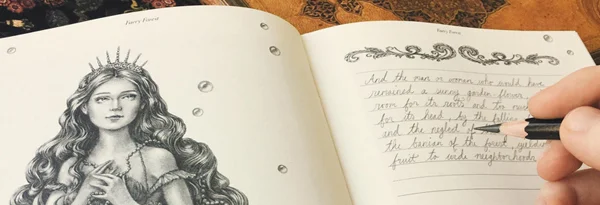 Fairy Forest
Fairy Forest
And the man or woman who would have
remained a sunny garden-flower,
room for its roots and too
for its head, by the falling
and the neglect of
the banian of the forest, yielding
fruit to wide neighborhoods